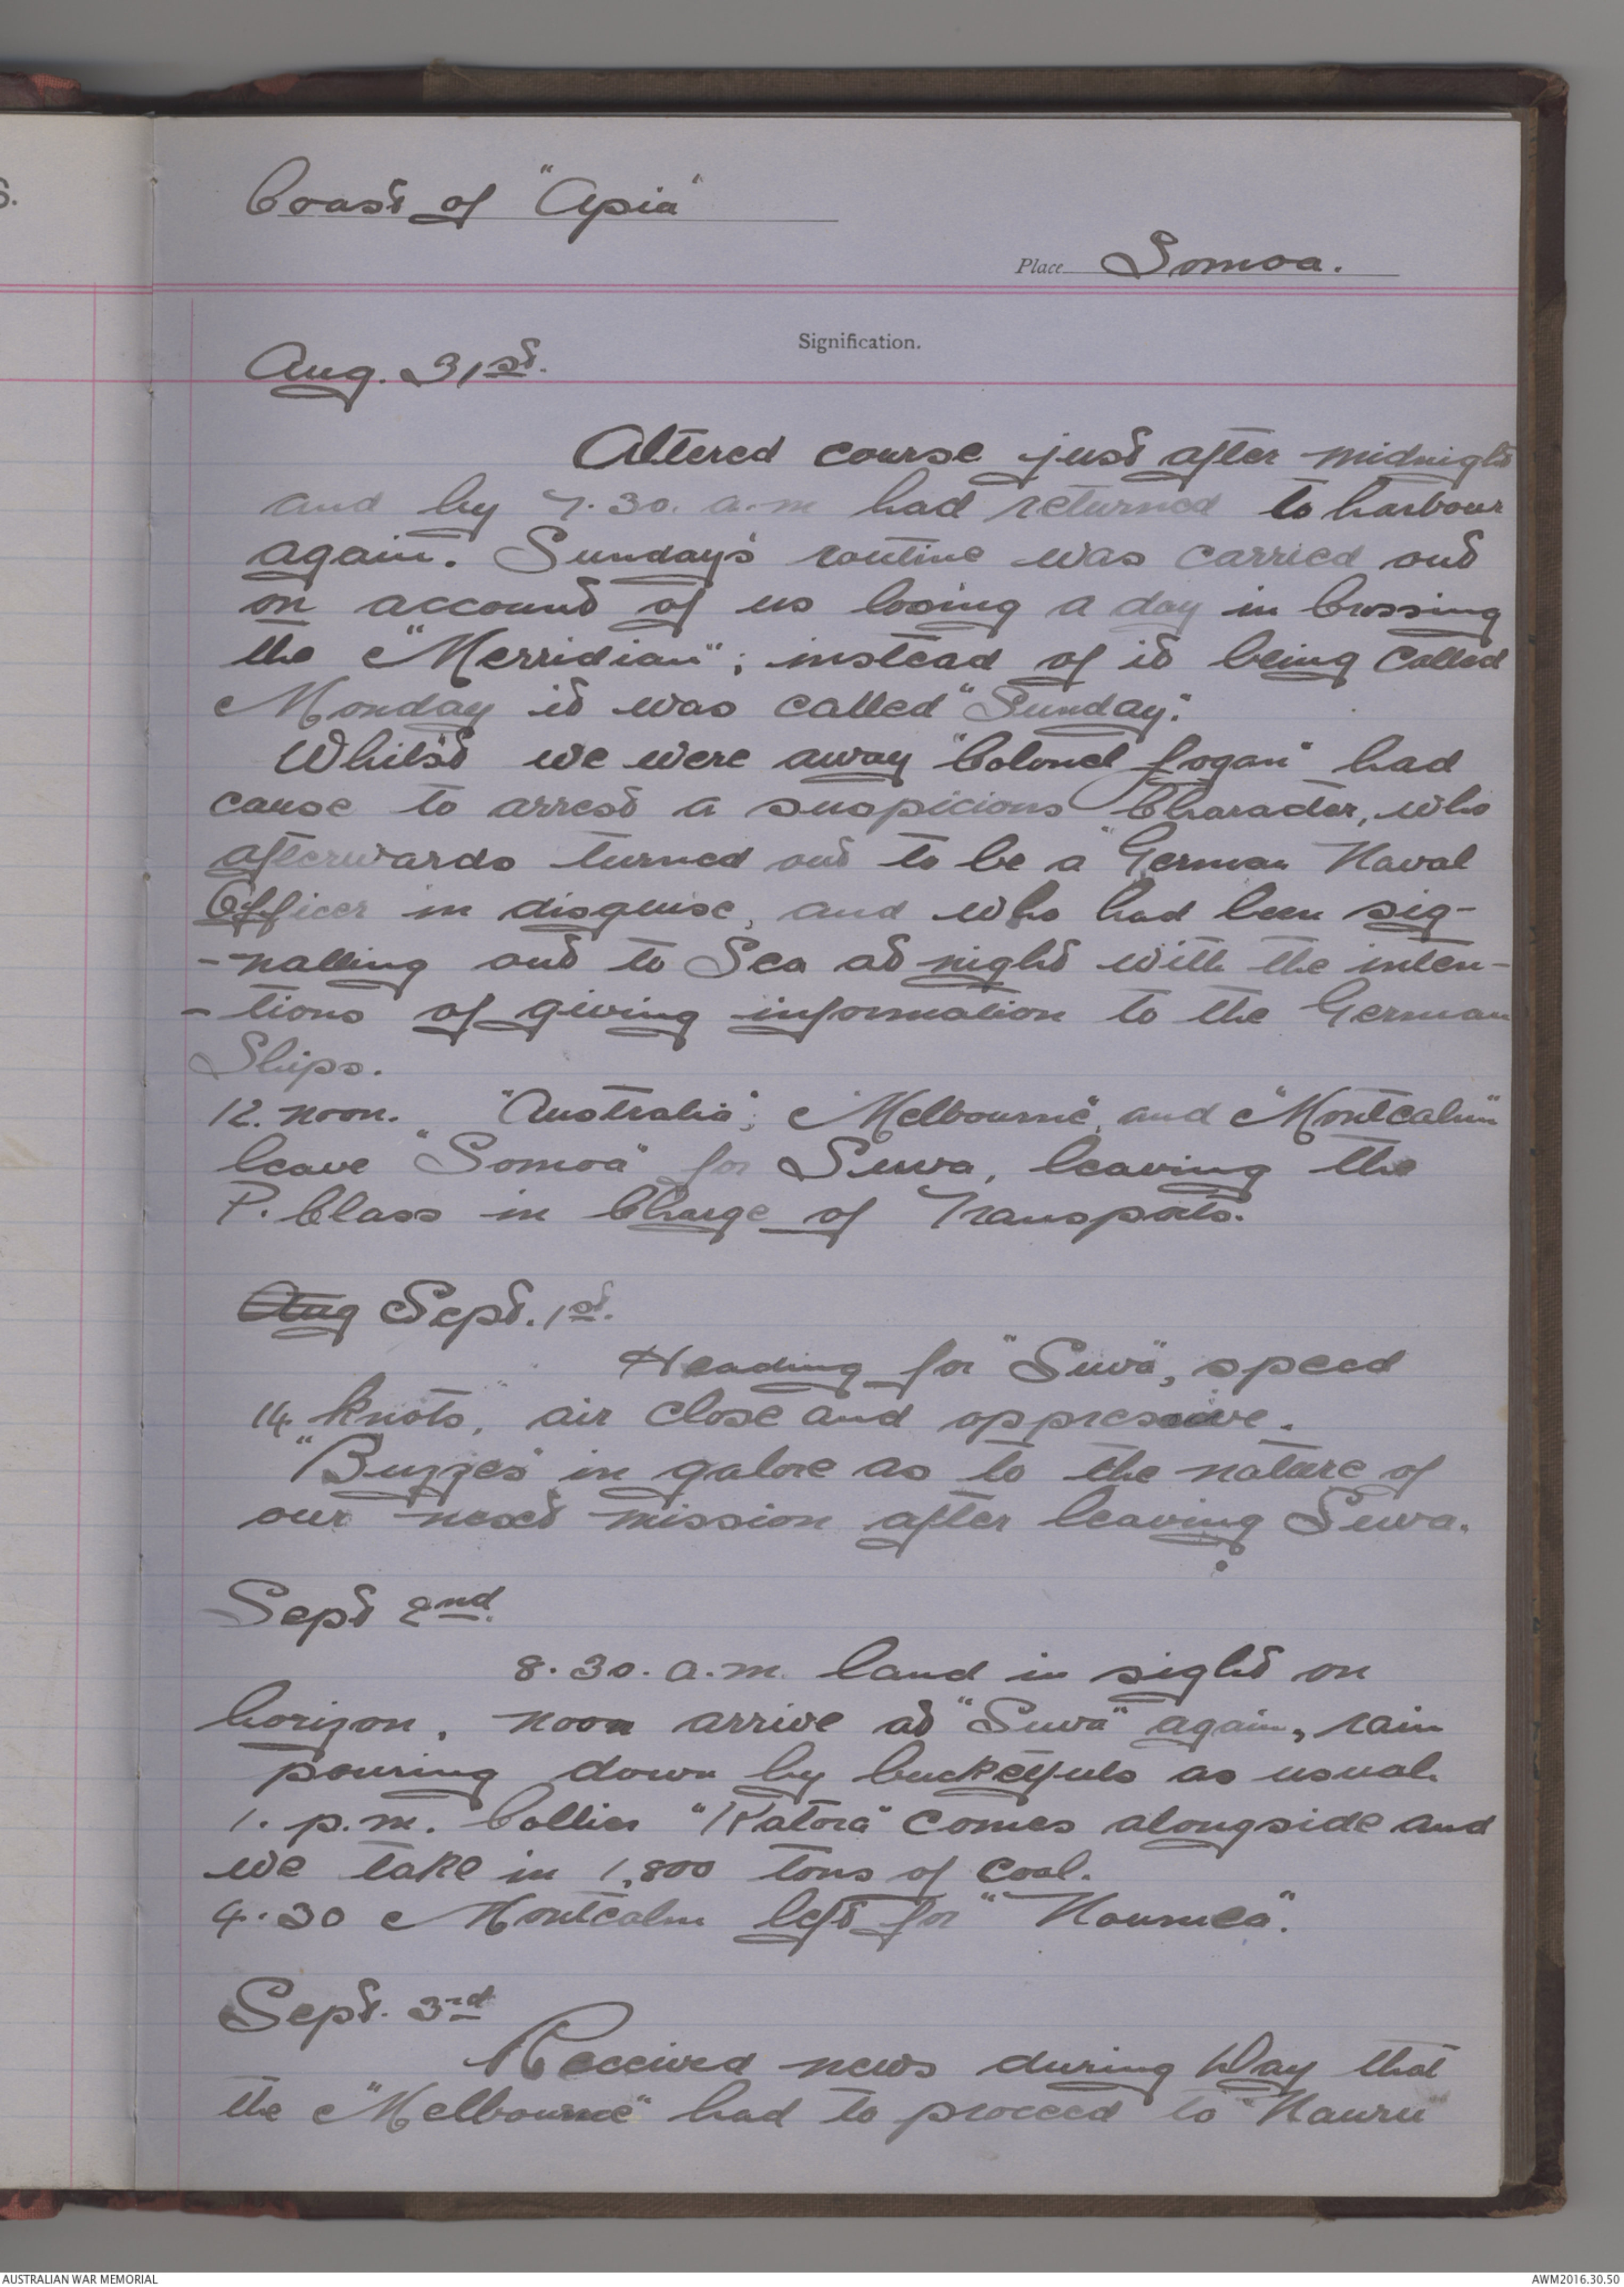 S.
Coast of "Apia"
Place Somoa.
Signification.
Aug. 31st.
Altered course just after midnight
and by 7.30. a.m had returned to harbour
again. Sunday's routine was carried out
on account of us losing a day in Crossing
the "Merridian"; instead of it being called
Monday it was called "Sunday".
Whilst we were away "Colonel Logan" had
cause to arrest a suspicious Character, who
afterwards turned out to be a "German Naval
Officer in disguise, and who had been sig-
-nalling out to Sea at night with the inten-
-tions of giving information to the German
Ships.
12. noon. "Australia", "Melbourne", and "Montcalm"
leave "Somoa" for Suva, leaving the
P. Class in Charge of Transports.
Aug Sept. 1st.
Heading for "Suva", speed
14 knots, air close and oppressive.
"Buzzes" in galore as to the nature of
our next mission after leaving Suva.
Sept 2nd.
8.30. a.m. land in sight on
horizon, noon arrive at "Suva" again, rain
pouring down by bucketfuls as usual.
1. p.m. Collier "Katora" comes alongside and
we take in 1,800 tons of coal.
4.30 Montcalm left for "Noumea".
Sept. 3rd
Received news during Day that
the "Melbourne" had to proceed to "Nauru"
AUSTRALIAN WAR MEMORIAL
AWM2016.30.50